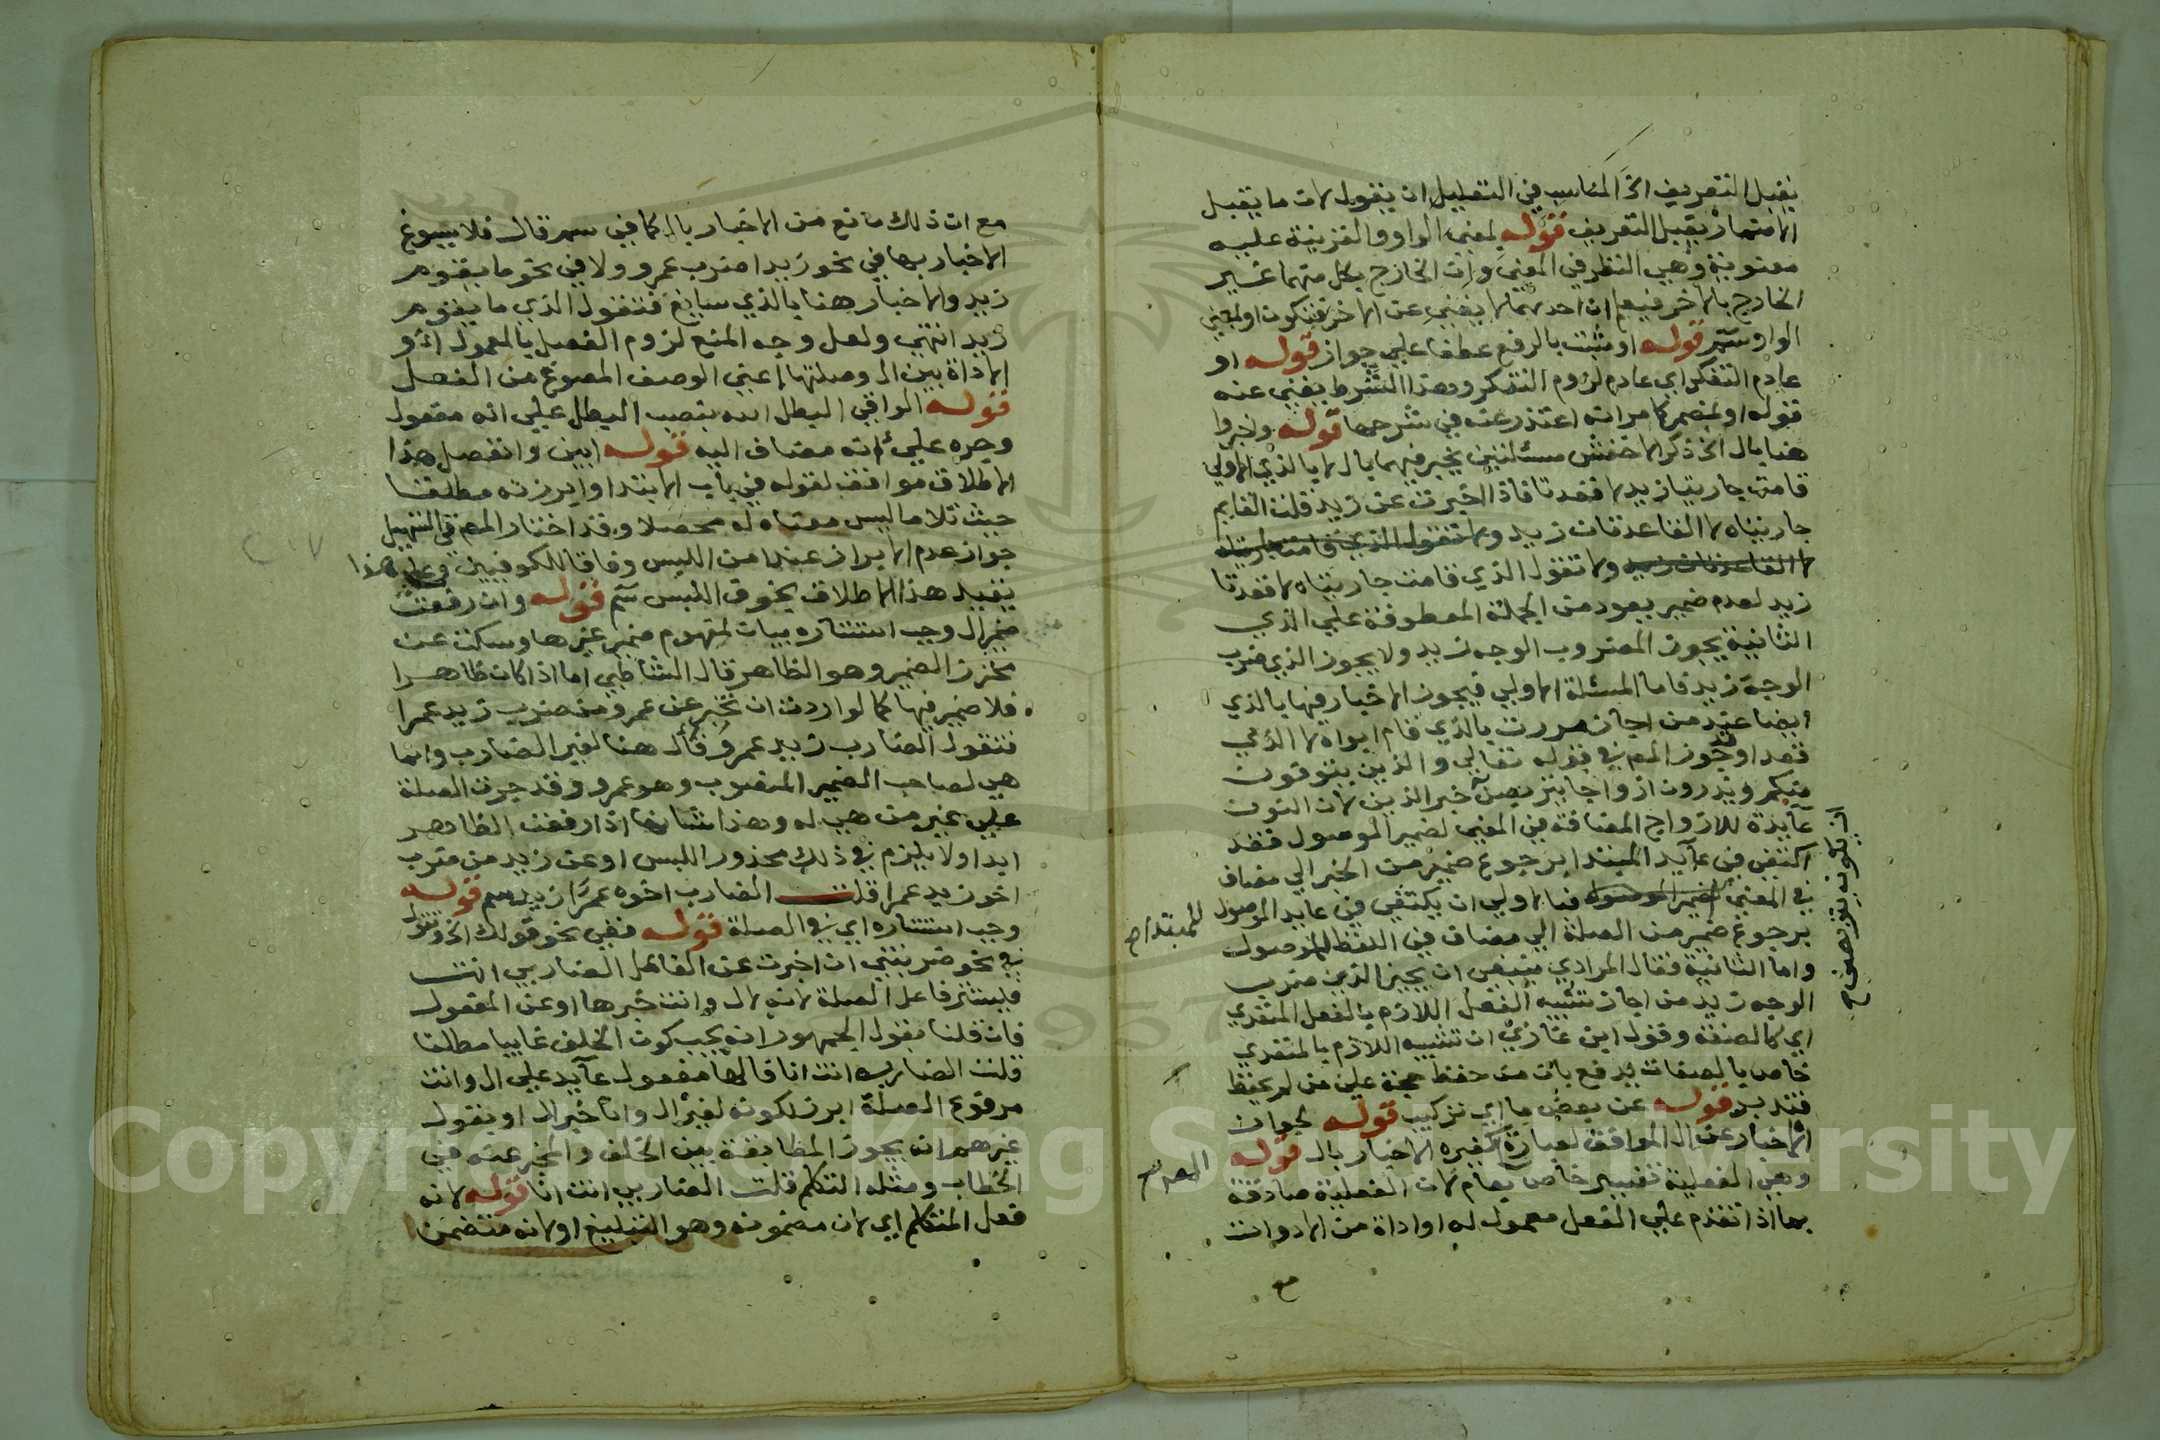 يقبل التعريف اذ المناسب في التعليل ان يقول لان ما يقبل
الاضمار يقبل التعريف قوله لمعني الواو والقرينة عليه
معنوية وهي النظر في المعني وان الخارج بكل منهما غير
الخارج بالاخر فيعلم ان احدهما لا يغني عن الاخر فتكون او بمعني
الواو سم قوله او مثبت بالرفع عطفا علي جواز قوله او
عادم التفكر اي عادم لزوم التفكر وهذا الشرط يغني عنه
قوله او بمضمر كما مر انه اعتذر عنه في شرحها قوله واخبروا
هنا بال الخ ذكر الاخفش مسئلتين يخبر فيهما بال لا بالذي الاولي
قامت جاريتا زيد لا قعدتا فاذا اخبرت عن زيد قلت القايم
جاريتاه لا القاعدتان زيد ولا تقول الذي قامت جاريتاه
لا القاعدتان زيد ولا تقول الذي قامت جاريتاه لا قعدتا
زيد لعدم ضمير يعود من الجملة المعطوفة علي الذي
الثانية يجوز المضروب الوجه زيد ولا يجوز الذي ضرب
الوجه زيد فاما المسئلة الاولي فيجوز الاخبار فيها بالذي
ايضا عند من اجاز مررت بالذي قام ابواه لا الذي
قعدا وقد جوز المص في قوله تعالي والذين يتوفون
منكم ويذرون ازواجا يتربصن خبر الذين لان النون
عايدة للازواج المضافة في المعني لضمير الموصول فقد
اكتفي في عايد المبتدا برجوع ضمير من الخبر الي مضاف
في المعني لضمير الموصول فبالاولي ان يكتفي في عايد الموصول
برجوع ضمير من الصلة الي مضاف في اللفظ للموصول
واما الثانية فقال المرادي ينبغي ان يجيز الذي ضرب
الوجه زيد من اجاز تشبيه الفعل اللازم بالفعل المتعدي
اي كالصفة وقول ابن غازي ان تشبيه اللازم بالمتعدي
خاص بالصفات يدفع بان من حفظ حجة علي من لم يحفظ
فتدبر قوله عن بعض ما اي تركيب قوله لجواز
الاخبار عن ال الموافق لعبارة غيره الاخبار بال قوله
وهي الفعلية تفسير خاص بعام لان الفعلية صادقة
بها اذا تقدم علي الفعل معمول له او اداة من الا دوات
مع
ان يكون يتربصن ص
للمبتدا ص
مع ان ذلك مانع من الاخبار بال كما في سم قال فلا يسوغ
الاخبار بها في نحو زيدا ضرب عمرو ولا في نحو ما يقوم
زيد والاخبار هنا بالذي سايغ فتقول الذي ما يقوم
زيد انتهي ولعل وجه المنع لزوم الفصل بالمعمول او
الاداة بين ال وصلتها اعني الوصف المصوغ من الفعل
قوله الواقي البطل الله بنصب البطل علي انه مفعول
وجره علي انه مضاف اليه قوله ابين وانفصل هذا
الاطلاق موافق لقوله في باب الابتدا وابرزنه مطلقا
حيث تلا ما ليس معناه له محصلا وقد اختار المص في التسهيل
جواز عدم الابراز عند امن اللبس وفاقا للكوفيين وعلي هذا
يقيد هذا الاطلاق بخوف اللبس سم قوله وان رفعت
ضمير ال وجب استتاره بيان لمفهوم ضمير غيرها وسكت عن
محترز الضمير وهو الظاهر قال الشاطبي اما اذا كان ظاهرا
فلا ضمير فيها كما لو اردت ان تخبر عن عمرو من ضرب زيد عمرا
فتقول الضارب زيد عمرو فال هنا لغير الضارب وانما
هي لصاحب الضمير المنصوب وهو عمرو وقد جرت الصلة
علي غير من هي له وهذا شانها اذا رفعت الظاهر
ابدا ولا يلزم في ذلك محذور اللبس او عن زيد من ضرب
اخو زيد عمرا قلت الضارب اخوه عمرا زيد سم قوله
وجب استتاره اي في الصلة قوله ففي نحو قولك الخ وتقول
في نحو ضربتني ان اخبرت عن الفاعل الضاربي انت
فليستتر فاعل الصلة لانه لال وانت خبرها او عن المفعول
فان قلنا بقول الجمهور انه يجب كون الخلف غايبا مطلقا
قلت الضاربه انت انا فالها مفعول عايد علي ال وانت
مرفوع الصلة ابرز لكونه لغير ال وانا خبر ال او بقول
غيرهم انه يجوز المطابقة بين الخلف والمخبر عنه في
الخطاب ومثله التكلم قلت الضاربي انت انا قوله لانه
فعل المتكلم اي لان مضمونه وهو التبليغ اولانه متضمن